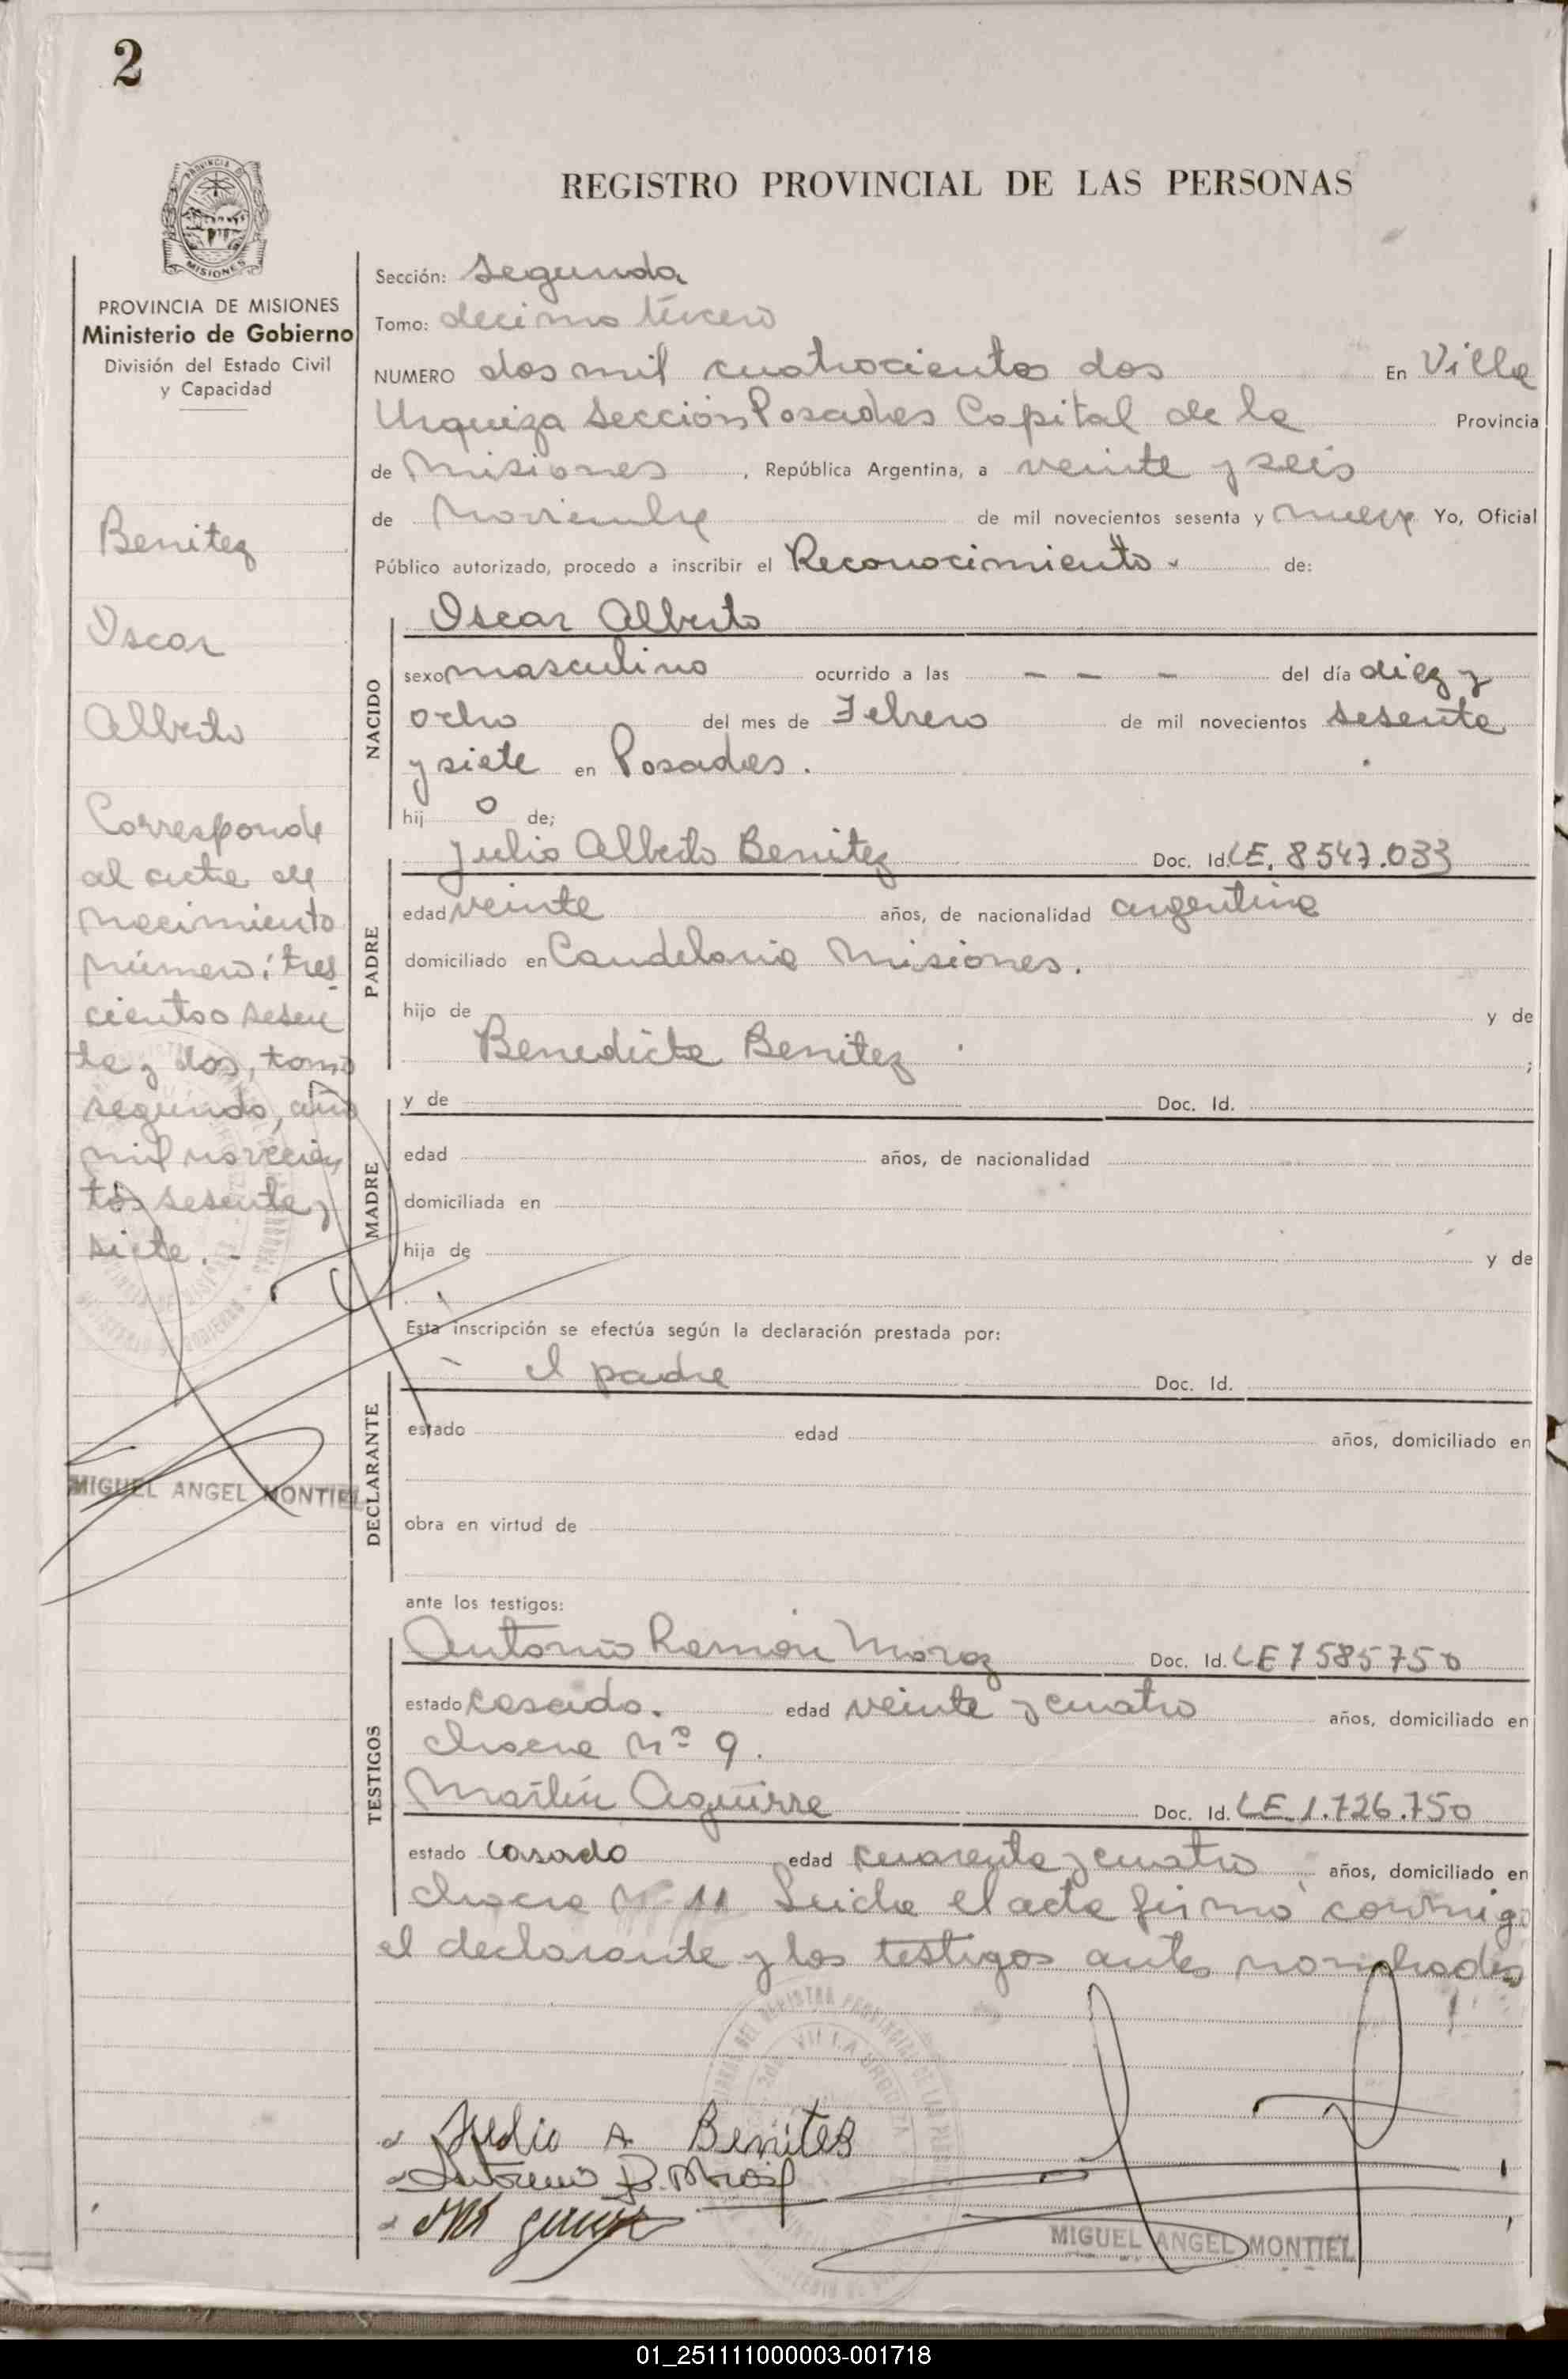 2
REGISTRO PROVINCIAL DE LAS PERSONAS
MISIONES
PROVINCIA DE MISIONES
Ministerio de Gobierno
División del Estado Civil
y Capacidad
Benitez
Oscar
Alberto
Corresponde
al acta de
nacimiento
número: tres
cientos sesen
ta y dos, tomo
segundo, año
mil novecien
tos sesenta y
siete. -
MIGUEL ANGEL MONTIEL
Sección: Segunda
Tomo: decimo tercero
NUMERO dos mil cuatrocientos dos En Villa
Urquiza Sección Posadas Capital de la Provincia
de Misiones, República Argentina, a veinte y seis
de Noviembre de mil novecientos sesenta y nueve Yo, Oficial
Público autorizado, procedo a inscribir el Reconocimiento. de:
NACIDO
Oscar Alberto
sexo masculino ocurrido a las - - - del día diez y
ocho del mes de Febrero de mil novecientos sesenta
y siete en Posadas.
hij o de;
PADRE
Julio Alberto Benitez Doc. Id. LE. 8547.033
edad veinte años, de nacionalidad argentina
domiciliado en Candelaria Misiones.
hijo de y de
Benedicta Benitez ;
MADRE
y de Doc. Id.
edad años, de nacionalidad
domiciliada en
hija de y de
Esta inscripción se efectúa según la declaración prestada por:
DECLARANTE
el padre Doc. Id.
estado edad años, domiciliado en
obra en virtud de
ante los testigos:
TESTIGOS
Antonio Ramón Doc. Id. LE 7585750
estado casado. edad veinte y cuatro años, domiciliado en
chacra Nº 9.
Martín Aguirre Doc. Id. LE. 1.726.750
estado casado edad cuarenta y cuatro años, domiciliado en
chacra Nº 11 Leida el acta firmó conmigo
el declarante y los testigos antes nombrados
Julio A Benites
MIGUEL ANGEL MONTIEL
01_251111000003-001718